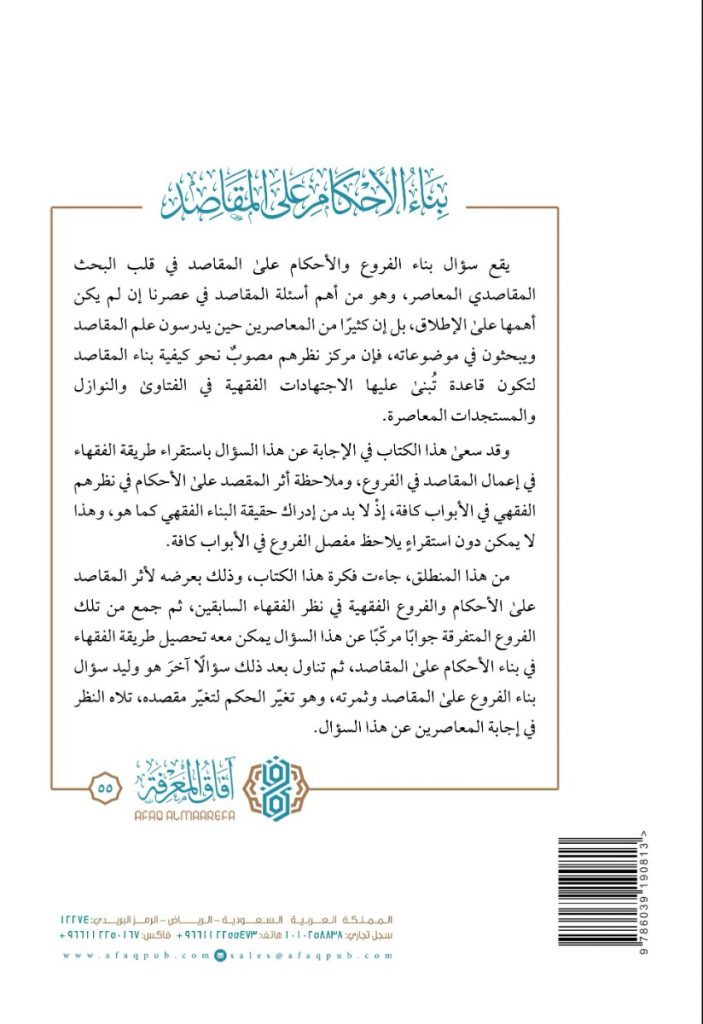 بِنَاءُ الأَحْكَامِ عَلَى المَقَاصِد
يقع سؤال بناء الفروع والأحكام علىٰ المقاصد في قلب البحث
المقاصدي المعاصر، وهو من أهم أسئلة المقاصد في عصرنا إن لم يكن
أهمها علىٰ الإطلاق، بل إن كثيرًا من المعاصرين حين يدرسون علم المقاصد
ويبحثون في موضوعاته، فإن مركز نظرهم مصوبٌ نحو كيفية بناء المقاصد
لتكون قاعدة تُبنىٰ عليها الاجتهادات الفقهية في الفتاوىٰ والنوازل
والمستجدات المعاصرة.
وقد سعىٰ هذا الكتاب في الإجابة عن هذا السؤال باستقراء طريقة الفقهاء
في إعمال المقاصد في الفروع، وملاحظة أثر المقصد علىٰ الأحكام في نظرهم
الفقهي في الأبواب كافة، إذْ لا بد من إدراك حقيقة البناء الفقهي كما هو، وهذا
لا يمكن دون استقراءٍ يلاحظ مفصل الفروع في الأبواب كافة.
من هذا المنطلق، جاءت فكرة هذا الكتاب، وذلك بعرضه لأثر المقاصد
علىٰ الأحكام والفروع الفقهية في نظر الفقهاء السابقين، ثم جمع من تلك
الفروع المتفرقة جوابًا مركّبًا عن هذا السؤال يمكن معه تحصيل طريقة الفقهاء
في بناء الأحكام علىٰ المقاصد، ثم تناول بعد ذلك سؤالًا آخرَ هو وليد سؤال
بناء الفروع علىٰ المقاصد وثمرته، وهو تغيّر الحكم لتغيّر مقصده، تلاه النظر
في إجابة المعاصرين عن هذا السؤال.
آفَاقُ المَعْرِفَة
AFAQ ALMAAREFA
٥٥
المملكة العربية السعودية – الرياض – الرمز البريدي: ١٢٢٧٤
سجل تجاري: ١٠١٠٢٥٨٨٣٨ هاتف: ٩٦٦١١٢٢٥٥٤٧٣+ فاكس: ٩٦٦١١٢٢٥٠١٦٧+
www.afaqpub.com sales@afaqpub.com
9 786039 190813 >